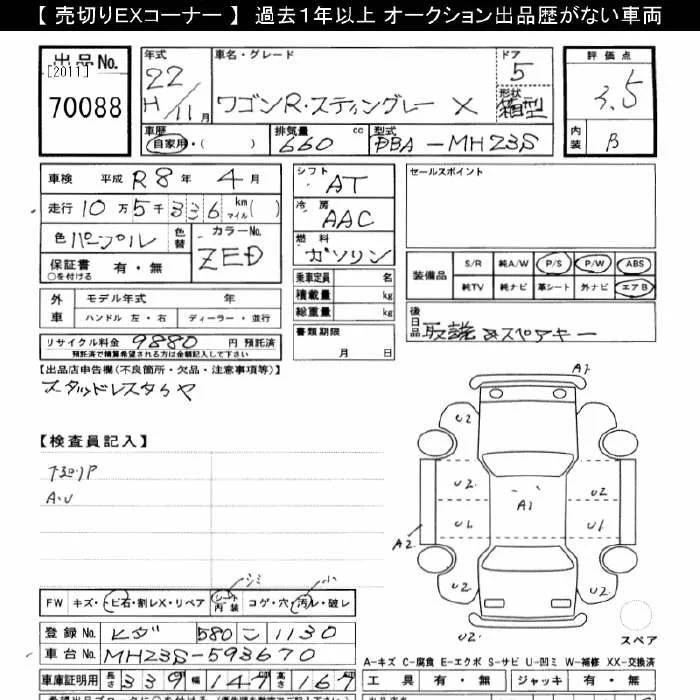 【 売切りEXコーナー 】 過去１年以上 オークション出品歴がない車両
出品No.
[2011]
70088
年式
22
H/11月
車名・グレード
ワゴンR・スティングレー X
ドア
5
形状
箱型
評価点
3.5
内装
B
車歴
自家用・( )
排気量
660 cc
型式
PBA-MH23S
車検 平成 R8年 4月
走行 10万5千336 km マイル( )
色 パープル
色替
カラーNo.
ZED
保証書 有・無
○を付ける
外車
モデル年式 年
ハンドル 左・右 ディーラー・並行
リサイクル料金 9880円 預託済
預託済で精算希望される方は金額記入して下さい
シフト
AT
冷房
AAC
燃料
ガソリン
乗車定員 名
積載量 kg
総重量 kg
書類期限
月 日
セールスポイント
装備品
S/R 純A/W P/S P/W ABS
純TV 純ナビ 革シート 外ナビ エアB
後日品
取説 スペアキー
【出品店申告欄(不良箇所・欠品・注意事項等)】
スタッドレスタイヤ
【検査員記入】
A.U
A1
U2
U2
U2
A1
U2
U1
U1
A2
U2
U2
U2
スペア
シミ
小
FW キズ・トビ石・割レX・リペア シート内装 コゲ・穴・汚レ・破レ
登録No. 580 こ 1130
車台No. MH23S-593670
車庫証明用 長さ 339 幅 147 高さ 167
A-キズ C-腐食 E-エクボ S-サビ U-凹ミ W-補修 XX-交換済
工具 有・無 ジャッキ 有・無